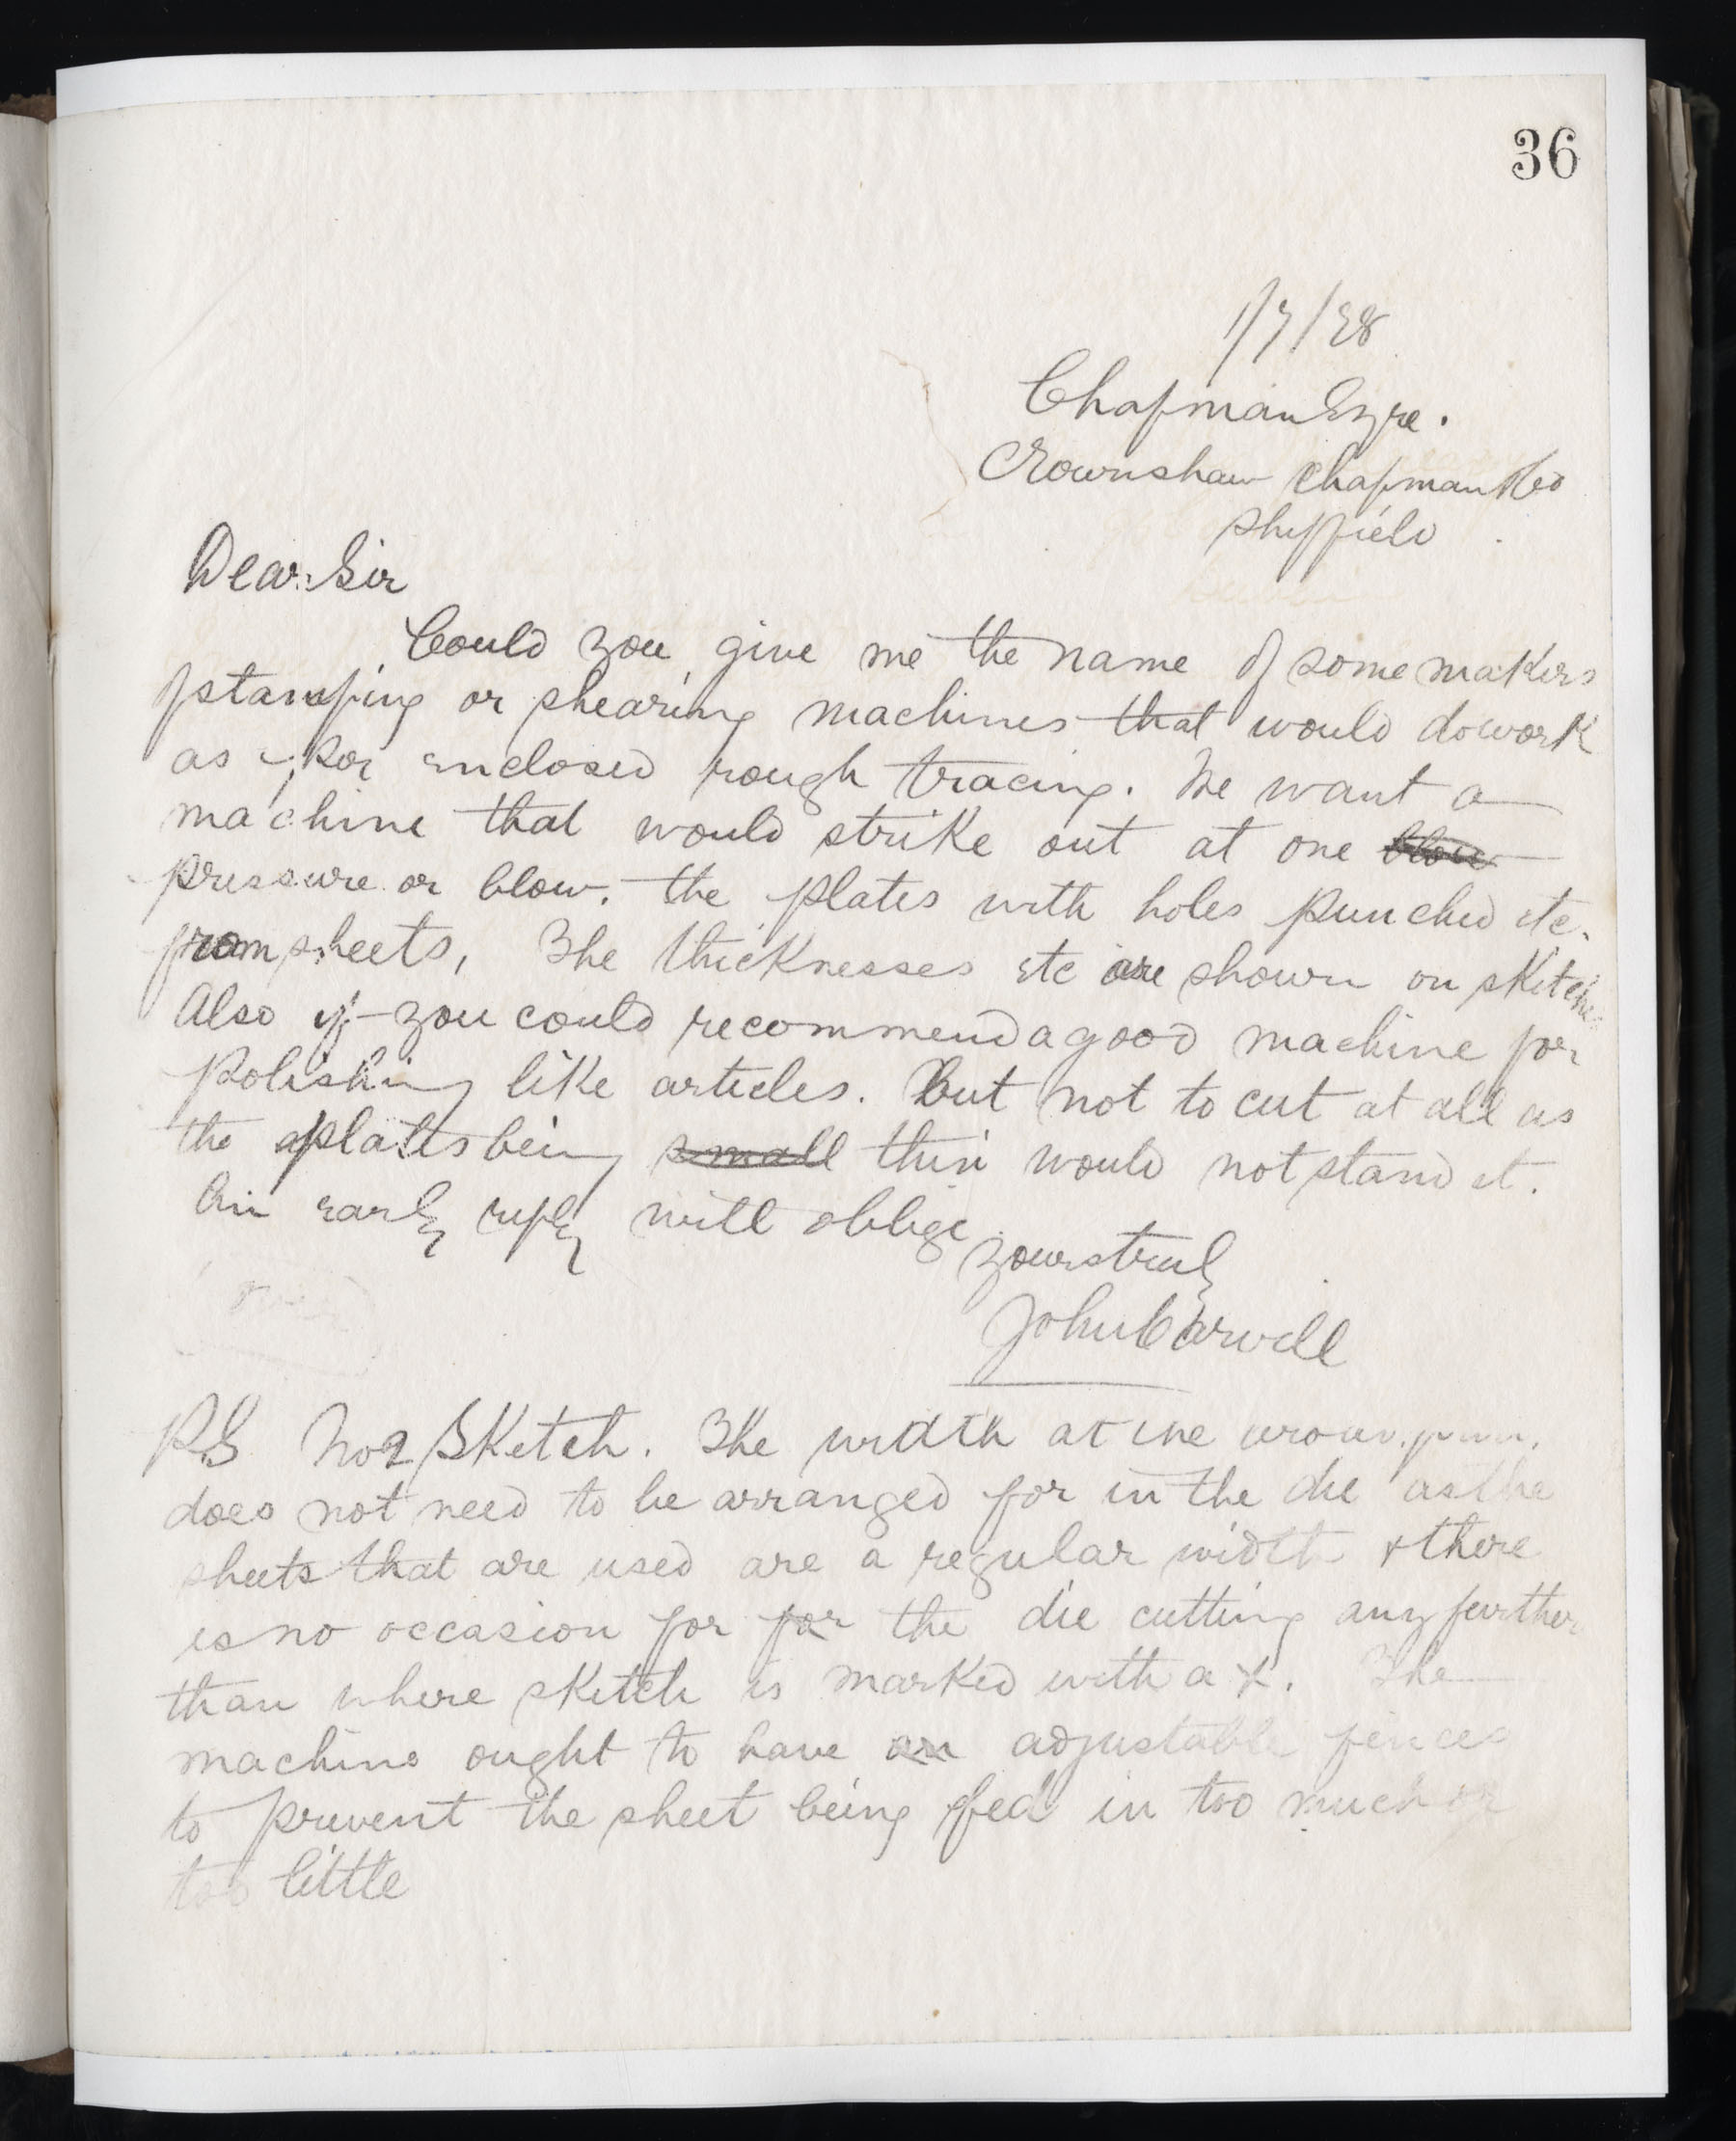 36
1/7/98
Chapman Eyre.
Crownshaw Chapman & Co
Sheffield
Dear Sir
Could you give me the name of some makers
of stamping or shearing machines that would do work
as per enclosed rough tracing. We want a
machine that would strike out at one blow
pressure or blow. the plates with holes punched etc.
from sheets, The thicknesses etc are shown on sketches
Also if you could recommend a good machine for
polishing like articles. But not to cut at all as
the plates being small thin would not stand it.
An early reply will oblige
yours truly
John Carvell
PS No 2 Sketch. The width at the
does not need to be arranged for in the die as the
sheets that are used are a regular width & there
is no occasion for for the die cutting any further
than where sketch is marked with a x. The
machine ought to have an adjustable fences
to prevent the sheet being fed in too much or
too little